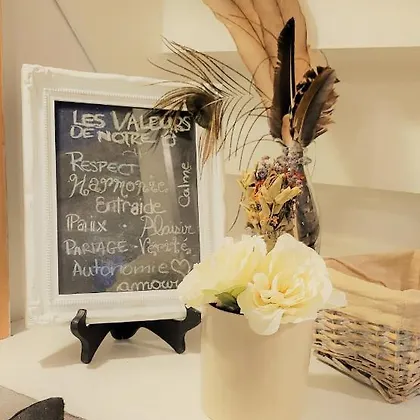 LES VALEURS
DE NOTRE
RESPECT
Harmonie
Calme
Entraide
Paix . Plaisir
PARTAGE . Vérité
Autonomie
amour